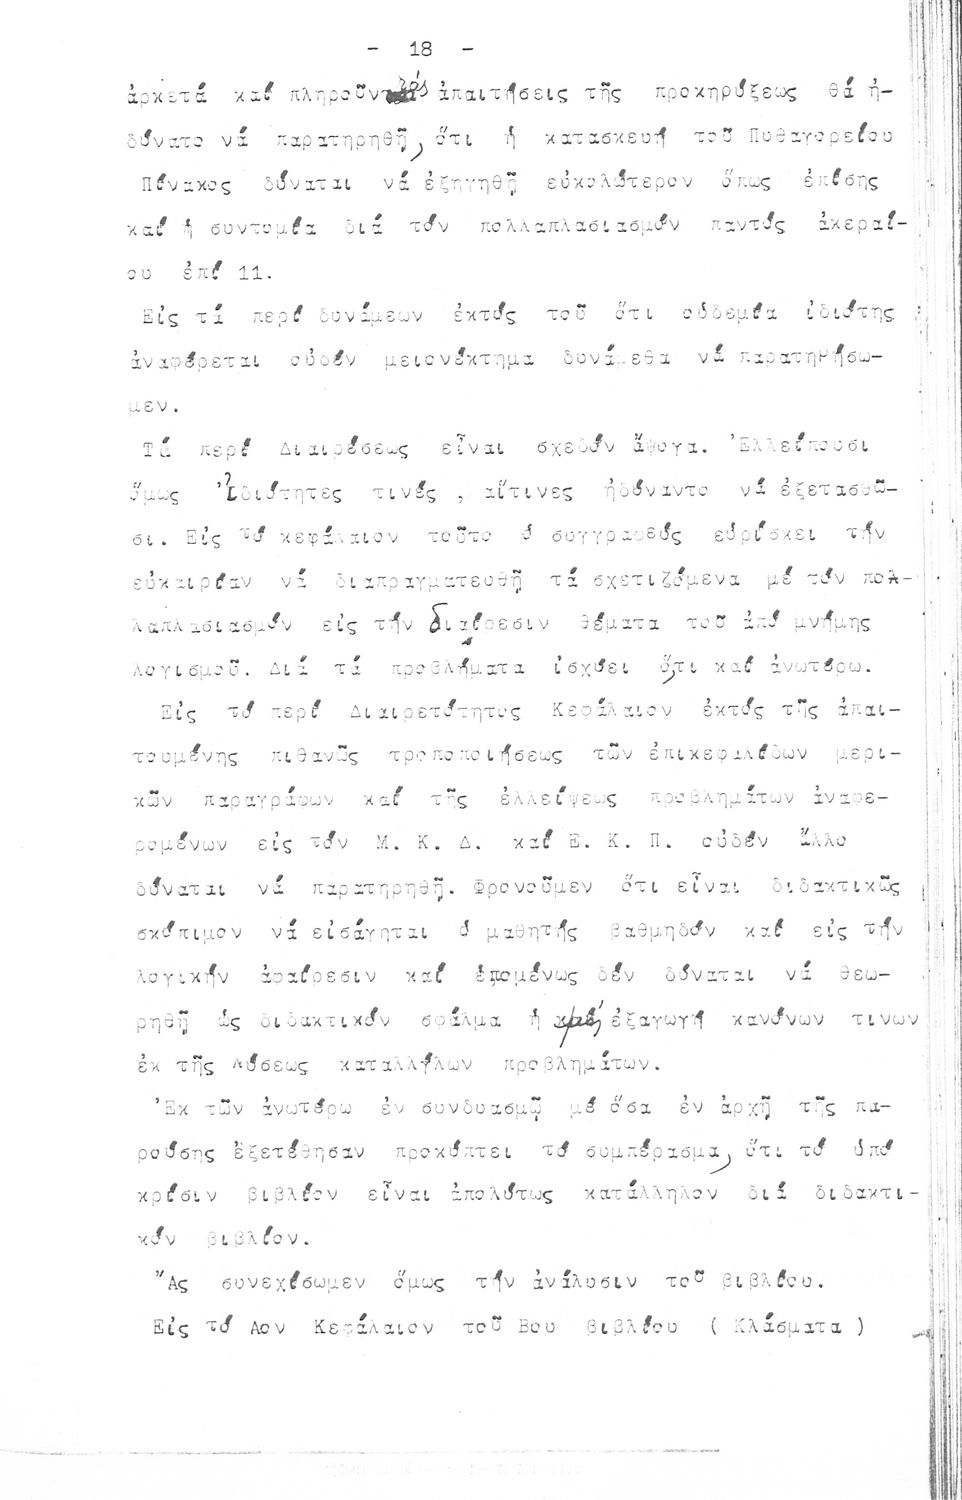 - 18 -
ἀρκετά καί πληροῦν τάς ἀπαιτήσεις τῆς προκηρύξεως θά ἠ-
δύνατο νά παρατηρηθῇ, ὅτι ἡ κατασκευή τοῦ Πυθαγορείου
Πίνακος δύναται νά ἐξηγηθῇ εὐκολώτερον ὅπως ἐπίσης
καί ἡ συντομία διά τόν πολλαπλασιασμόν παντός ἀκεραί-
ου ἐπί 11.
Εἰς τά περί δυνάμεων ἐκτός τοῦ ὅτι οὐδεμία ἰδιότης
ἀναφέρεται οὐδέν μειονέκτημα δυνάμεθα νά παρατηρήσω-
μεν.
Τά περί Διαιρέσεως εἶναι σχεδόν ἄψογα. Ἐλλείπουσι
ὅμως Ἰδιότητες τινές , αἵτινες ἠδύναντο νά ἐξετασθῶ-
σι. Εἰς τό κεφάλαιον τοῦτο ὁ συγγραφεύς εὑρίσκει τήν
εὐκαιρίαν νά διαπραγματευθῇ τά σχετιζόμενα μέ τόν πολ-
λαπλασιασμόν εἰς τήν διαίρεσιν θέματα τοῦ ἀπό μνήμης
λογισμοῦ. Διά τά προβλήματα ἰσχύει ὅτι καί ἀνωτέρω.
Εἰς τό περί Διαιρετότητος Κεφάλαιον ἐκτός τῆς ἀπαι-
τουμένης πιθανῶς τροποποιήσεως τῶν ἐπικεφαλίδων μερι-
κῶν παραγράφων καί τῆς ἐλλείψεως προβλημάτων ἀναφε-
ρομένων εἰς τόν Μ. Κ. Δ. καί Ε. Κ. Π. οὐδέν ἄλλο
δύναται νά παρατηρηθῇ. Φρονοῦμεν ὅτι εἶναι διδακτικῶς
σκόπιμον νά εἰσάγηται ὁ μαθητής βαθμηδόν καί εἰς τήν
λογικήν ἀφαίρεσιν καί ἑπομένως δέν δύναται νά θεω-
ρηθῇ ὡς διδακτικόν σφάλμα ἡ μή ἐξαγωγή κανόνων τινων
ἐκ τῆς λύσεως καταλλήλων προβλημάτων.
Ἐκ τῶν ἀνωτέρω ἐν συνδυασμῷ μέ ὅσα ἐν ἀρχῇ τῆς πα-
ρούσης ἐξετέθησαν προκύπτει τό συμπέρασμα, ὅτι τό ὑπό
κρίσιν βιβλίον εἶναι ἀπολύτως κατάλληλον διά διδακτι-
κόν βιβλίον.
Ἄς συνεχίσωμεν ὅμως τήν ἀνάλυσιν τοῦ βιβλίου.
Εἰς τό Αον Κεφάλαιον τοῦ Βου βιβλίου ( Κλάσματα )